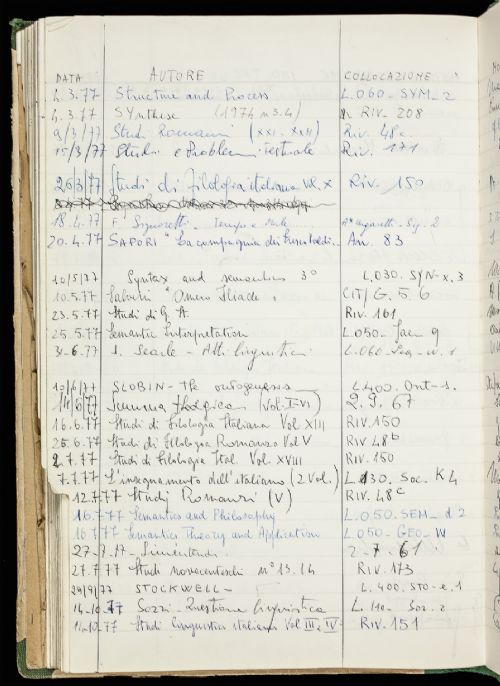 DATA AUTORE COLLOCAZIONE
4.3.77 Structure and Process L.060-SYM-2
4.3.77 Synthese (1974 n3.4) RIV. 208
9/3/77 Studi Romanzi (XXI-XXII) Riv. 48c
15/3/77 Studi e Problemi Testuale Riv. 171
26/3/77 Studi di filologia italiana Vol. X Riv. 150
18.4.77 F. Signoretti
20.4.77 SAPORI "La compagnia dei Frescobaldi.. An. 83
10/5/77 Syntax and semantics 3° L.030-SYN-x.3
10.5.77 Salvini "Omero Iliade CIT/G.5.6
23.5.77 Studi di G. It. RIV. 161
25.5.77 Semantic Interpretation L.050-Jac 9
3-6.77 J. Searle - Atti linguistici L.060-Sea-w.1
10/6/77 SLOBIN - The ontogenesis L.400.Ont-1.
14/6/77 Summa (Vol. I-VI) 2.9.67
16.6.77 Studi di filologia Italiana Vol XIII RIV.150
25.6.77 Studi di filologia Romanza Vol V RIV 48b
2.7.77 Studi di filologia Ital. Vol. XVIII RIV.150
7.7.77 L'insegnamento dell'italiano (2 Vol.) L.130. Soc. K4
12.7.77 Studj Romanzi (V) RIV. 48c
16.7.77 Semantics and Philosophy L.050.SEM-d2
16.7.77 Semantics Theory and Application L.050-GEO-W
27-7.77 - 2-7.61
27.7.77 Studi novecenteschi n° 13.14 RIV. 173
29/9/77 STOCKWELL - L.400.STO-e.1
14-10.77 Sozzi - Questione linguistica L.110-Soz.2
14-10.77 Studi linguistica italiana Vol III, IV- RIV. 151